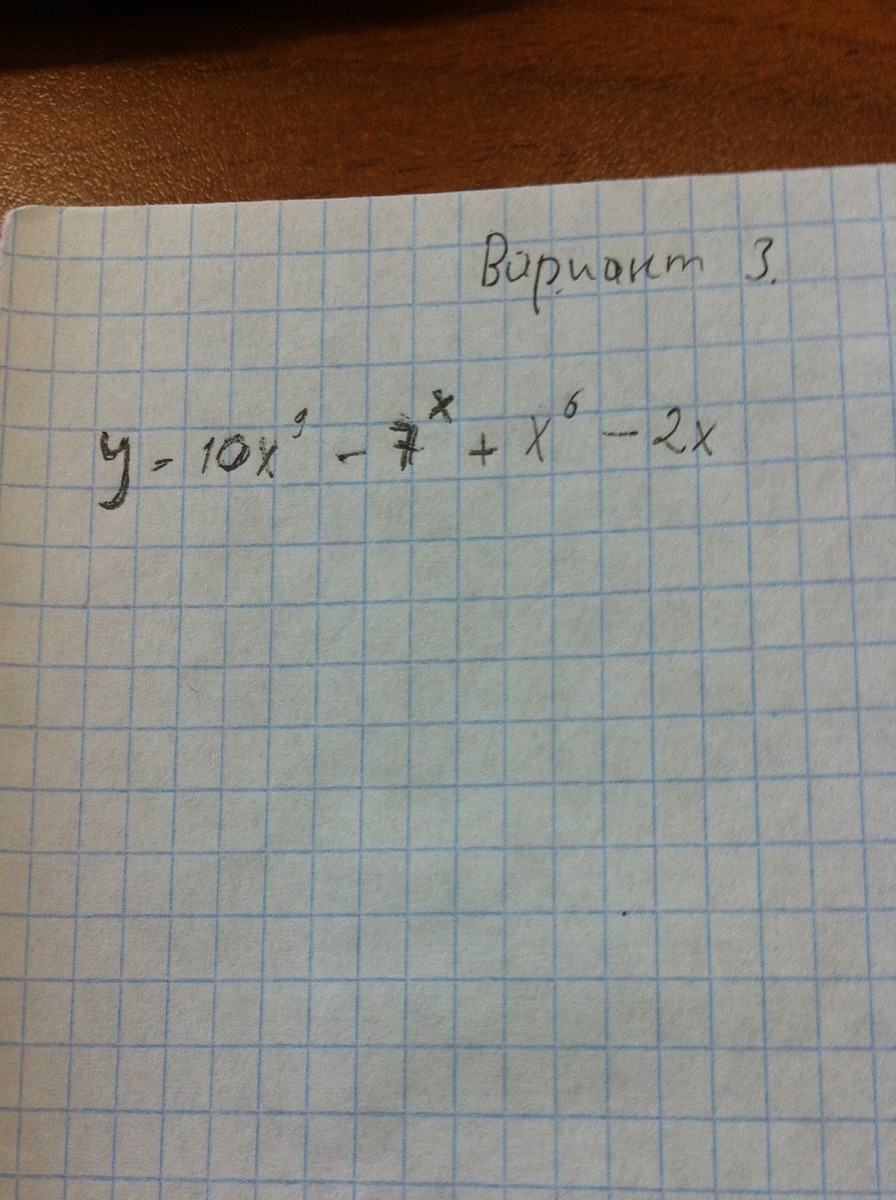 Вариант 3.
y = 10x⁹ - 7ˣ + x⁶ - 2x